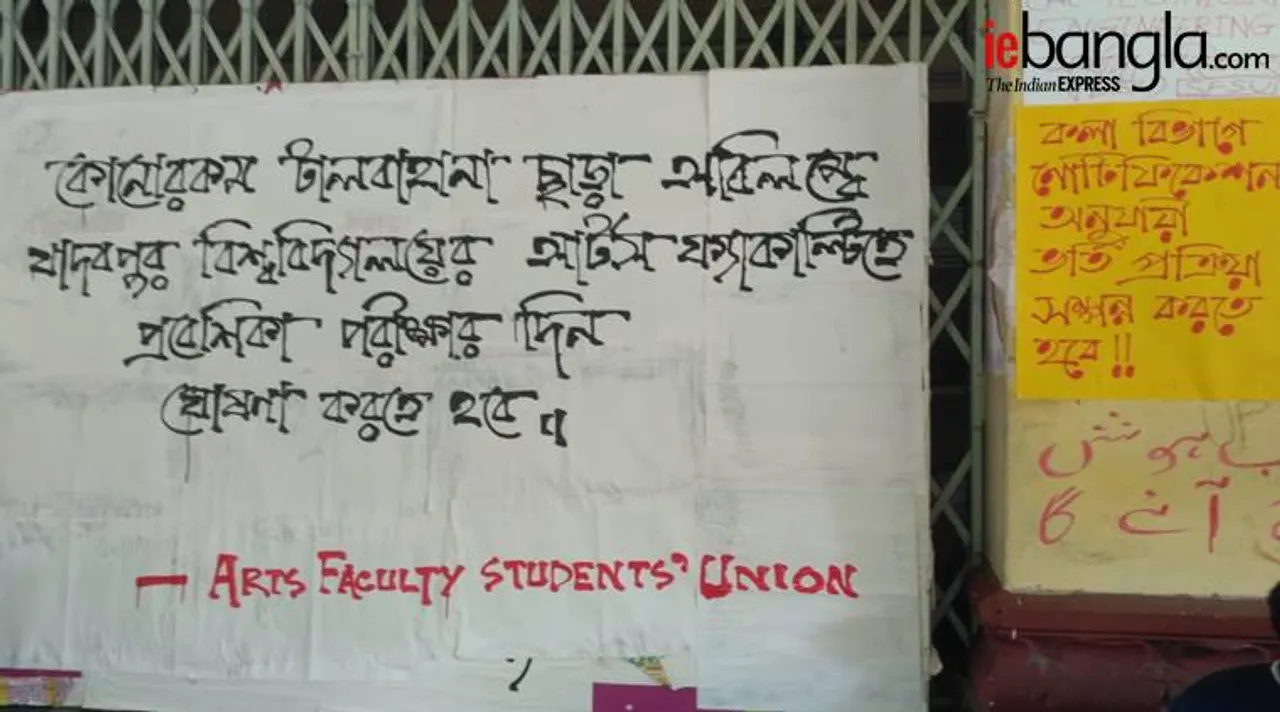 iebangla.com
The Indian EXPRESS
কোনোরকম টালবাহানা ছাড়া অবিলম্বে
যাদবপুর বিশ্ববিদ্যালয়ের আর্টস ফ্যাকাল্টিতে
প্রবেশিকা পরীক্ষার দিন
ঘোষনা করতে হবে।
— ARTS FACULTY STUDENTS' UNION
ENGINEERING
কলা বিভাগে
নোটিফিকেশন
অনুযায়ী
ভর্তি প্রক্রিয়া
সম্পন্ন করতে
হবে!!